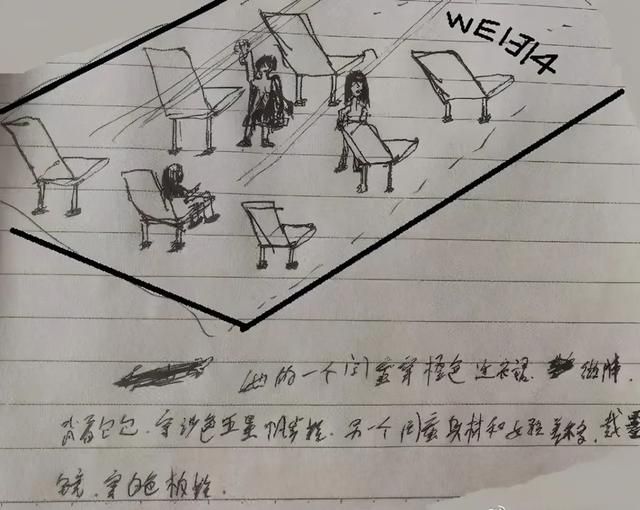 WE1314
她的一个闺蜜穿橙色连衣裙.微胖.
背着包包.穿沙色五星帆步鞋.另一个闺蜜身材和女孩差不多,戴墨
镜.穿白色板鞋.